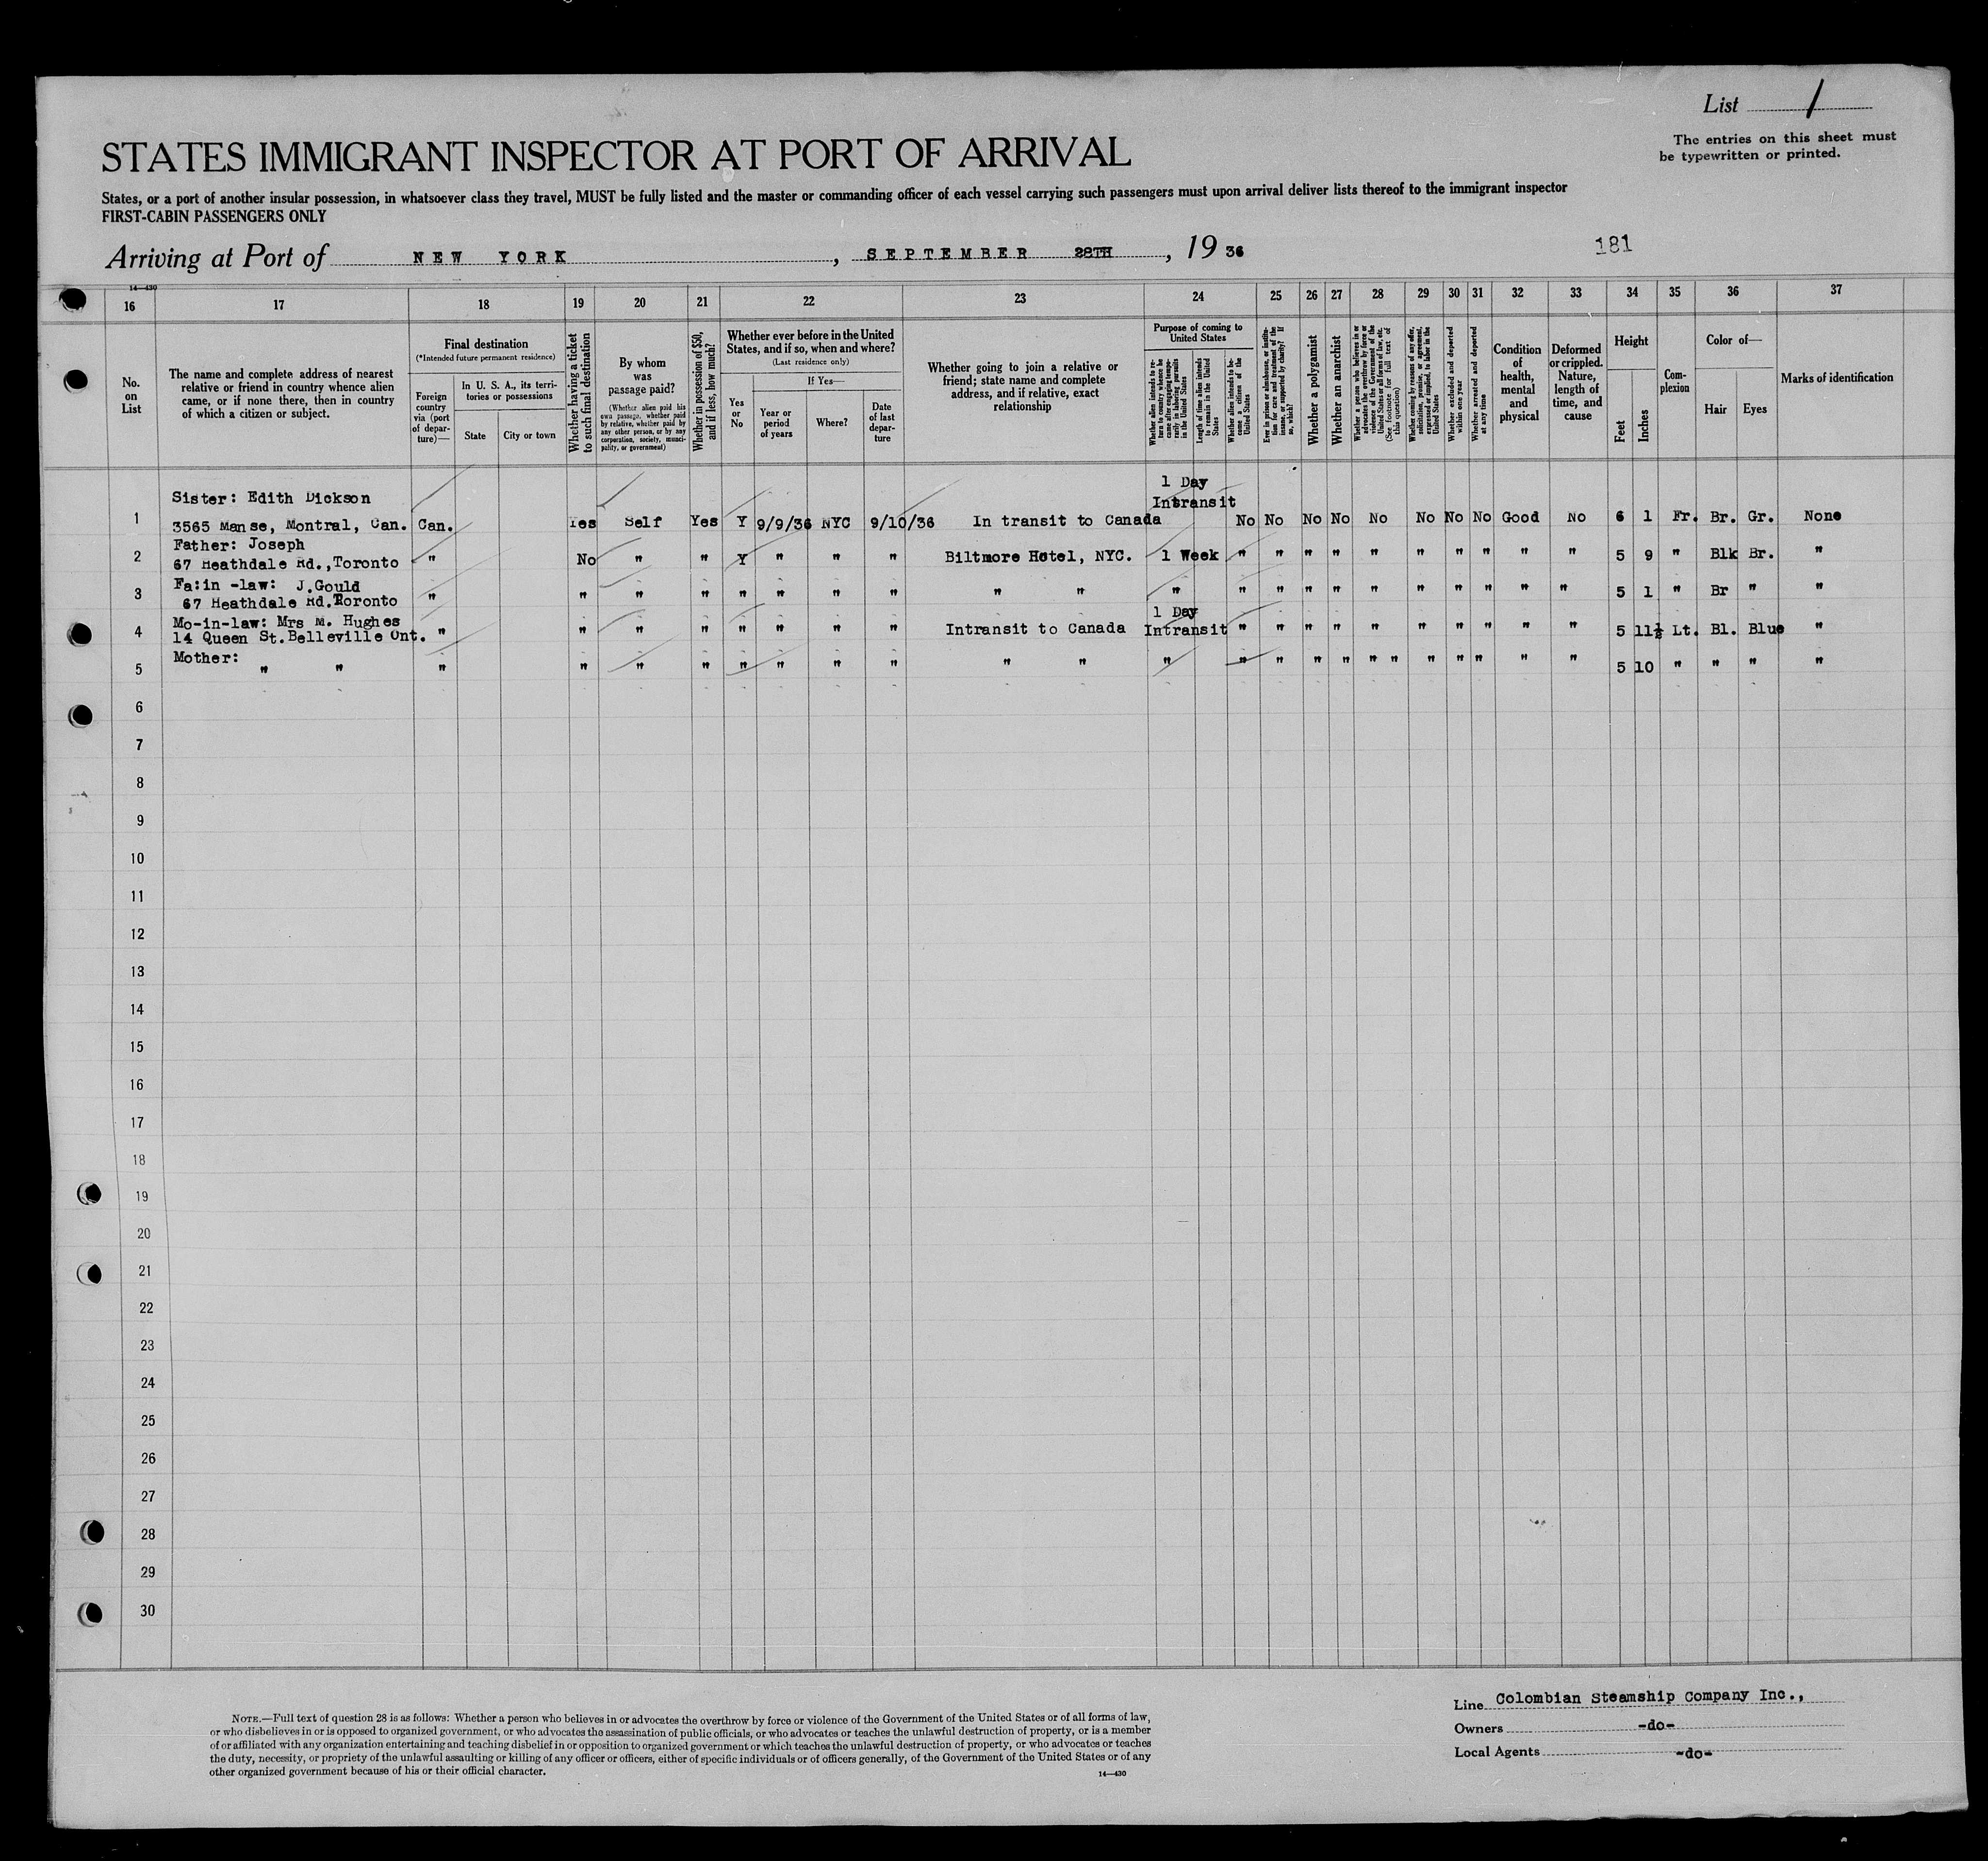 List 1
The entries on this sheet must
be typewritten or printed.
STATES IMMIGRANT INSPECTOR AT PORT OF ARRIVAL
States, or a port of another insular possession, in whatsoever class they travel, MUST be fully listed and the master or commanding officer of each vessel carrying such passengers must upon arrival deliver lists thereof to the immigrant inspector
FIRST-CABIN PASSENGERS ONLY
Arriving at Port of NEW YORK, SEPTEMBER 28TH, 19 36
181
14—430
16 17 18 19 20 21 22 23 24 25 26 27 28 29 30 31 32 33 34 35 36 37
No. on List
The name and complete address of nearest relative or friend in country whence alien came, or if none there, then in country of which a citizen or subject.
Final destination
(*Intended future permanent residence)
Foreign country via (port of departure)—
In U. S. A., its territories or possessions
State
City or town
Whether having a ticket to such final destination
By whom was passage paid?
(Whether alien paid his own passage, whether paid by relative, whether paid by any other person, or by any corporation, society, municipality, or government)
Whether in possession of $50, and if less, how much?
Whether ever before in the United States, and if so, when and where?
(Last residence only)
Yes or No
If Yes—
Year or period of years
Where?
Date of last departure
Whether going to join a relative or friend; state name and complete address, and if relative, exact relationship
Purpose of coming to United States
Whether alien intends to return to country whence he came after engaging temporarily in laboring pursuits in the United States
Length of time alien intends to remain in the United States
Whether alien intends to become a citizen of the United States
Ever in prison or almshouse, or institution for care and treatment of the insane, or supported by charity? If so, which?
Whether a polygamist
Whether an anarchist
Whether a person who believes in or advocates the overthrow by force or violence of the Government of the United States or all forms of law, etc. (See footnote for full text of this question)
Whether coming by reasons of any offer, solicitation, promise, or agreement, expressed or implied, to labor in the United States
Whether excluded and deported within one year
Whether arrested and deported at any time
Condition of health, mental and physical
Deformed or crippled. Nature, length of time, and cause
Height
Feet
Inches
Complexion
Color of—
Hair
Eyes
Marks of identification
1 Day
Sister: Edith Dickson Intransit
1 3565 Manse, Montral, Can. Can. Yes Self Yes Y 9/9/36 NYC 9/10/36 In transit to Canada No No No No No No No No Good No 6 1 Fr. Br. Gr. None
Father: Joseph
2 67 Heathdale Rd.,Toronto " No " " Y " " " Biltmore Hotel, NYC. 1 Week " " " " " " " " " " 5 9 " Blk Br. "
Fa:in -law: J.Gould
3 67 Heathdale Rd.Toronto " " " " " " " " " " " " " " " " " " " " " 5 1 " Br " "
Mo-in-law: Mrs M. Hughes 1 Day
4 14 Queen St.Belleville Ont. " " " " " " " " Intransit to Canada Intransit " " " " " " " " " " 5 11½ Lt. Bl. Blue "
Mother:
5 " " " " " " " " " " " " " " " " " " " " " " " " " 5 10 " " " "
6
7
8
9
10
11
12
13
14
15
16
17
18
19
20
21
22
23
24
25
26
27
28
29
30
NOTE.—Full text of question 28 is as follows: Whether a person who believes in or advocates the overthrow by force or violence of the Government of the United States or of all forms of law,
or who disbelieves in or is opposed to organized government, or who advocates the assassination of public officials, or who advocates or teaches the unlawful destruction of property, or is a member
of or affiliated with any organization entertaining and teaching disbelief in or opposition to organized government or which teaches the unlawful destruction of property, or who advocates or teaches
the duty, necessity, or propriety of the unlawful assaulting or killing of any officer or officers, either of specific individuals or of officers generally, of the Government of the United States or of any
other organized government because of his or their official character.
14—430
Line Colombian Steamship Company Inc.,
Owners -do-
Local Agents -do-